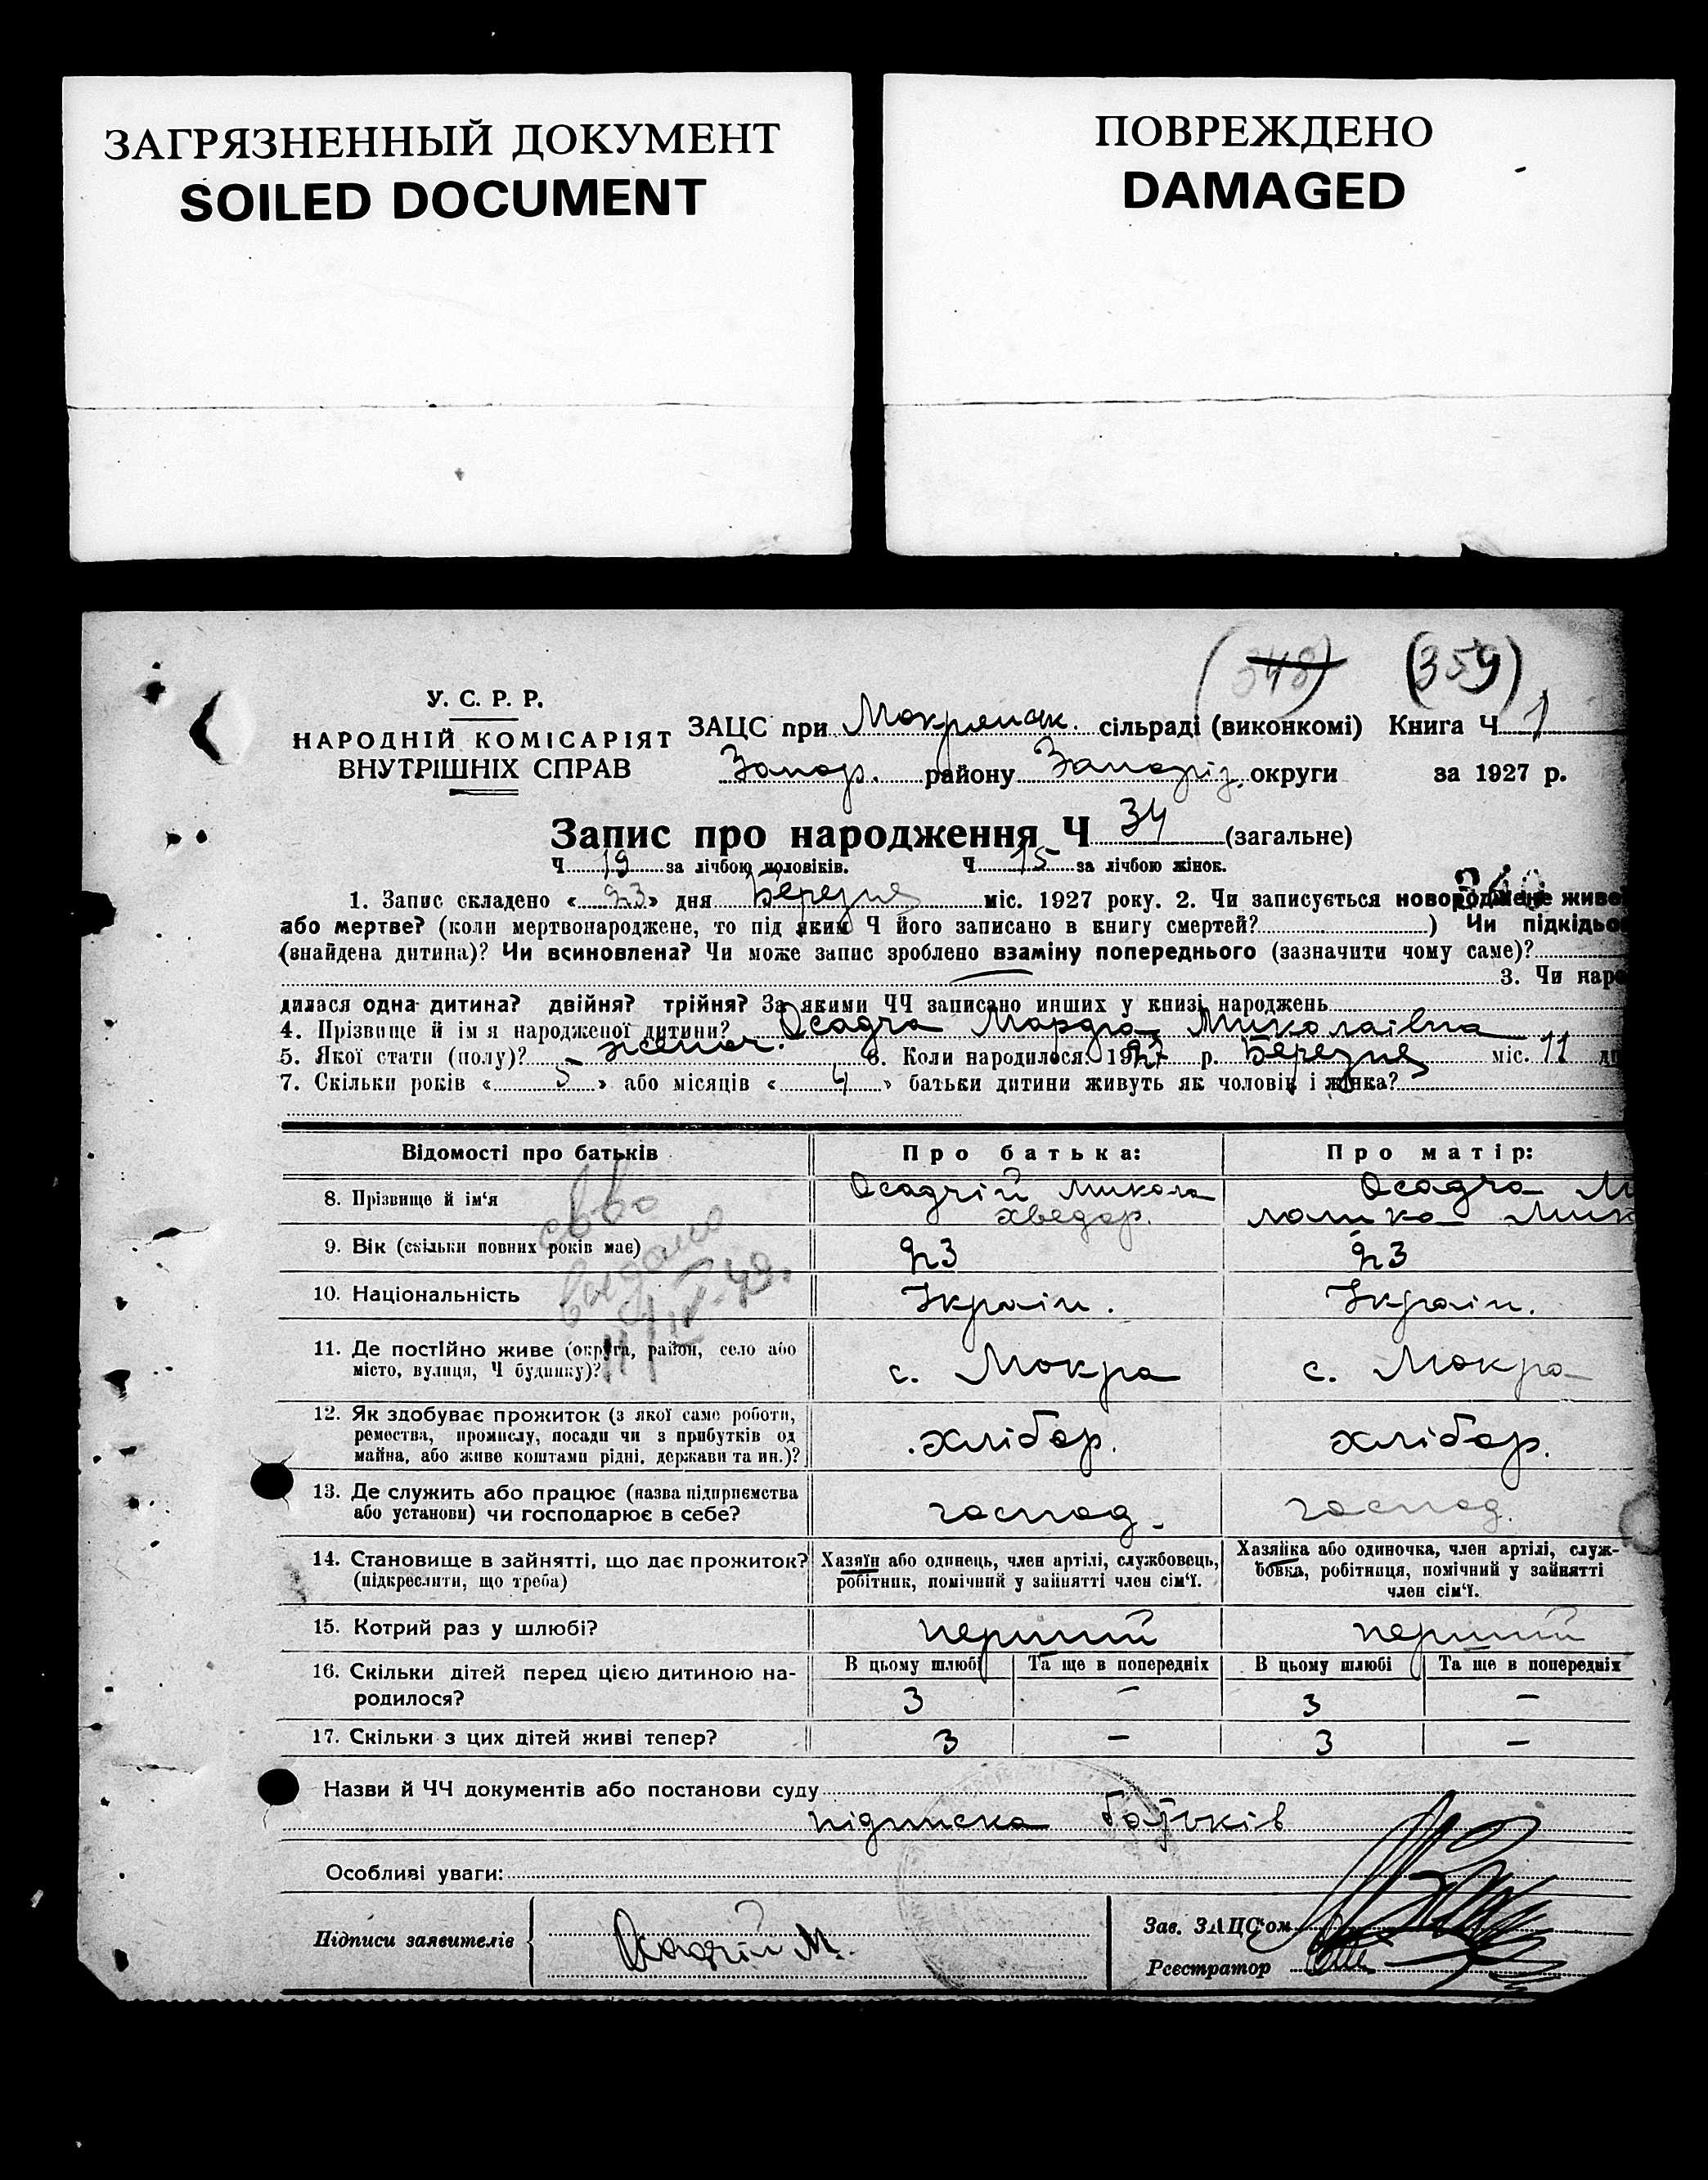 ЗАГРЯЗНЕННЫЙ ДОКУМЕНТ
SOILED DOCUMENT
ПОВРЕЖДЕНО
DAMAGED
(348) (359)
У. С. Р. Р.
НАРОДНІЙ КОМІСАРІЯТ
ВНУТРІШНІХ СПРАВ
ЗАЦС при Мокрянск. сільраді (виконкомі) Книга Ч 1
Запор. району Запоріз. округи за 1927 р.
Запис про народження Ч 34 (загальне)
Ч 19 за лічбою чоловіків. Ч 15 за лічбою жінок.
1. Запис складено « 23 » дня Березня міс. 1927 року. 2. Чи записується новороджене живе
або мертве? (коли мертвонароджене, то під яким Ч його записано в книгу смертей? ) Чи підкідьо
(знайдена дитина)? Чи всиновлена? Чи може запис зроблено взаміну попереднього (зазначити чому саме)?
3. Чи наро
дилася одна дитина? двійня? трійня? За якими ЧЧ записано инших у книзі народжень
4. Прізвище й ім'я народженої дитини? Осадча Марфа Миколаівна
5. Якої стати (полу)? жіноч. 6. Коли народилося: 1927 р. Березня міс. 11 дн
7. Скільки років « 5 » або місяців « 4 » батьки дитини живуть як чоловік і жінка?
Відомості про батьків Про батька: Про матір:
8. Прізвище й ім'я Осадчій Микола Осадча
Хведор.
9. Вік (скільки повних років має) 23 23
10. Національність Україн. Україн.
11. Де постійно живе (округа, район, село або
місто, вулиця, Ч будинку)? с. Мокра с. Мокра
12. Як здобуває прожиток (з якої саме роботи,
ремества, промислу, посади чи з прибутків од
майна, або живе коштами рідні, держави та ин.)? хлібор. хлібор.
13. Де служить або працює (назва підприємства
або установи) чи господарює в себе? господ. господ.
14. Становище в зайнятті, що дає прожиток?
(підкреслити, що треба)
Хазяїн або одинець, член артілі, службовець,
робітник, помічний у зайнятті член сім'ї.
Хазяйка або одиночка, член артілі, служ-
бовка, робітниця, помічний у зайнятті
член сім'ї.
15. Котрий раз у шлюбі? перший перший
16. Скільки дітей перед цією дитиною на-
родилося?
В цьому шлюбі Та ще в попередніх В цьому шлюбі Та ще в попередніх
3 – 3 –
17. Скільки з цих дітей живі тепер? 3 – 3 –
Назви й ЧЧ документів або постанови суду
підписка батьків
Особливі уваги:
Підписи заявителів Осадчій М.
Зав. ЗАЦС'ом
Реєстратор